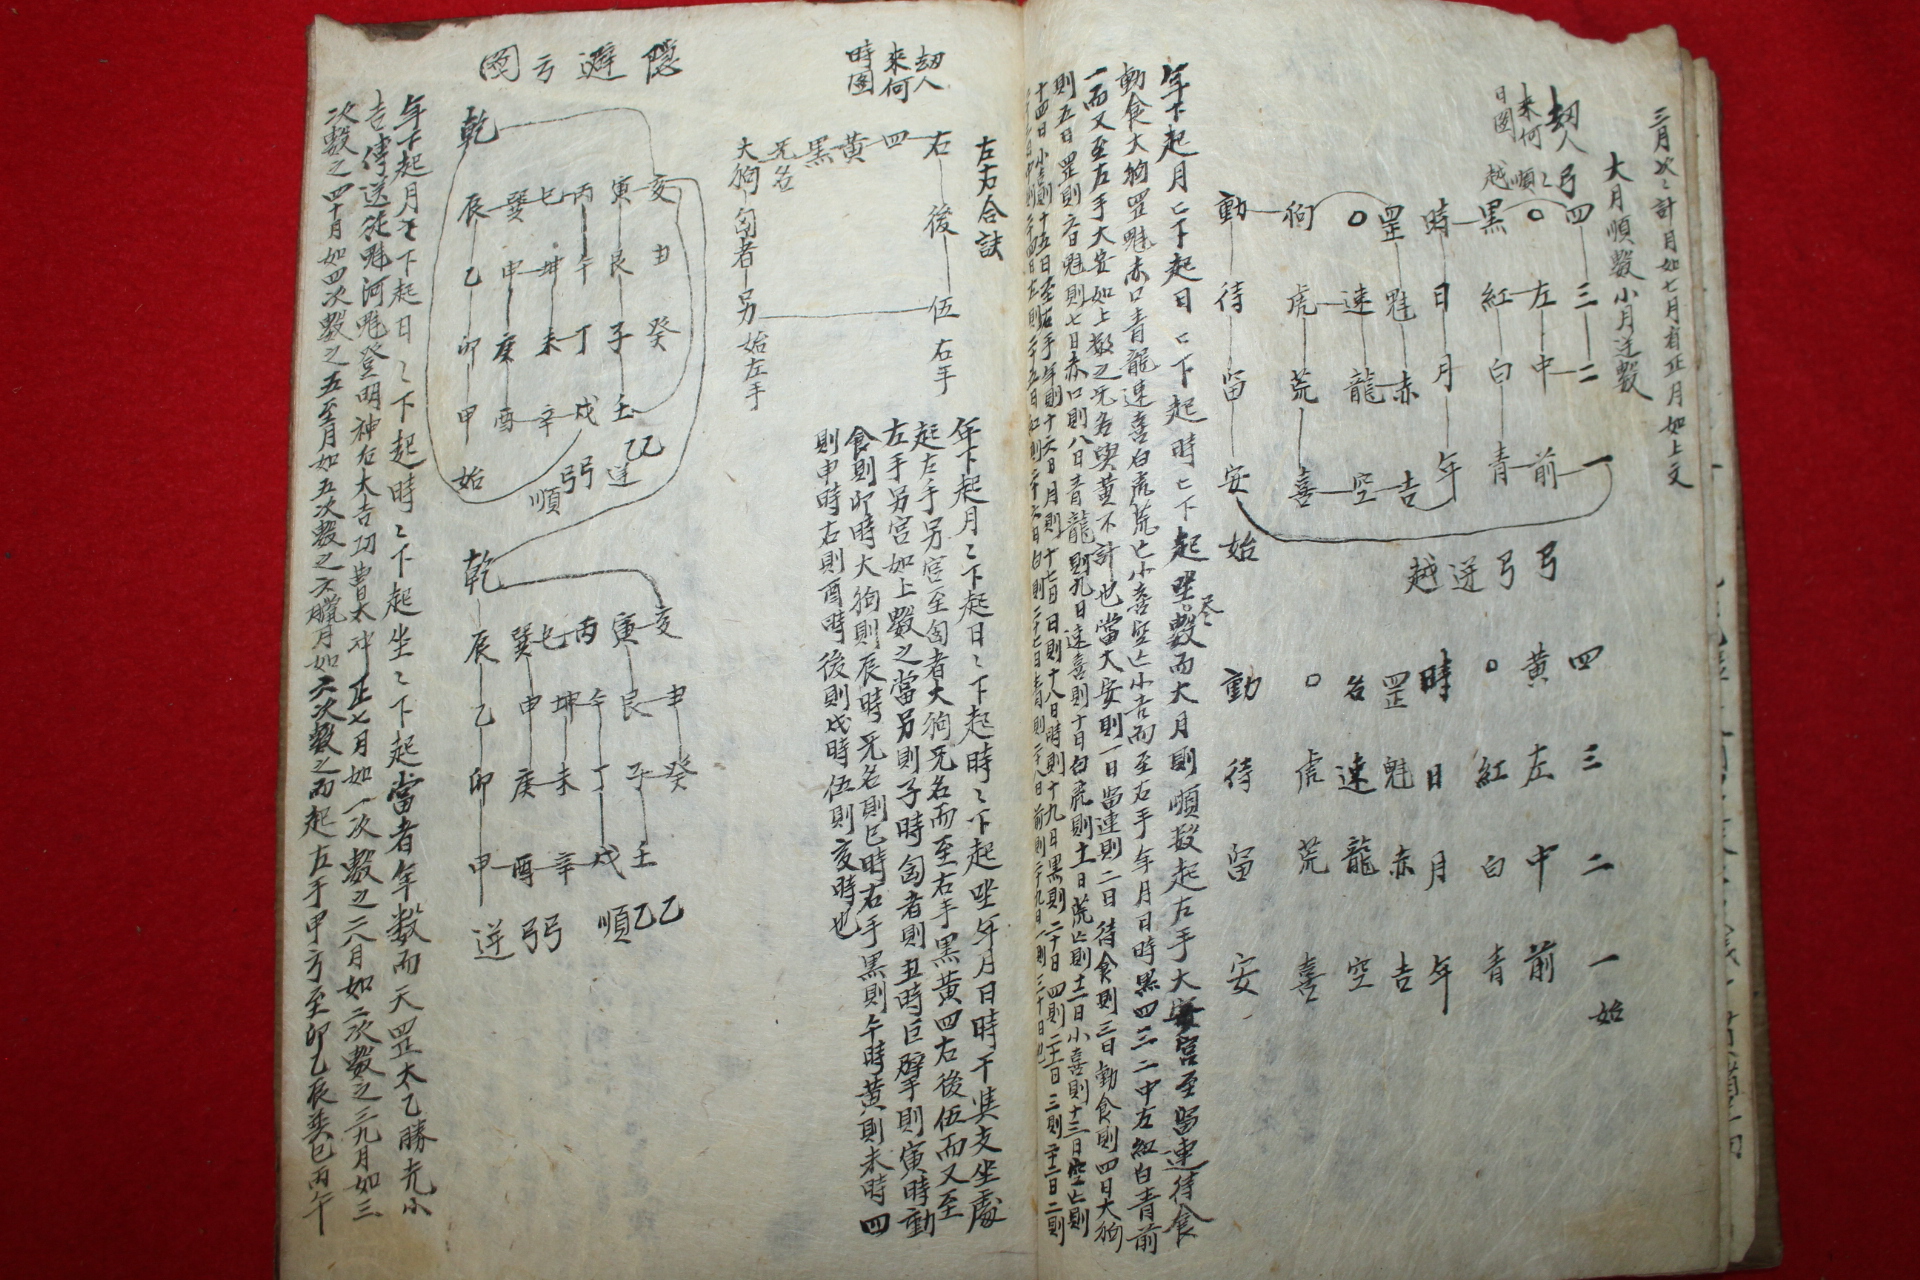 三月次〻計月如七月者正月如上文
大月順數小月逆數
劫人弓
來何順〻
日圖越
四 三 二 一
○ 左 中 前
黑 紅 白 青
時 日 月 年
罡 魁 赤 吉
○ 速 龍 空
狗 虎 荒 喜
動 待 留 安 始
弓弓逆越
四 三 二 一 始
黃 左 中 前
○ 紅 白 青
時 日 月 年
罡 魁 赤 吉
名 速 龍 空
○ 虎 荒 喜
動 待 留 安
年下起月〻下起日〻下起時〻下起坐數而大月則順數起左手大安宮至留連待食
動食大狗罡魁赤口青龍速喜白虎荒亡小喜空亡小吉而至右手年月日時黑四三二中左紅白青前
一而又至左手大安如上數之无名與黃不計也當大安則一日留連則二日待食則三日動食則四日大狗
則五日罡則六日魁則七日赤口則八日青龍則九日速喜則十日白虎則十一日荒亡則十二日小喜則十三日空亡則
十四日小吉則十五日至右手年則十六日月則十七日日則十八日時則十九日黑則二十日四則二十一日三則二十二日二則
劫人
來何
時圖
左右合訣
右 後 伍 右手
四
黃
黑
无名
大狗 匈者 另 始左手
年下起月〻下起日〻下起時〻下起坐年月日時干與支坐處
起左手另宮至匈者大狗无名而至右手黑黃四右後伍而又至
左手另宮如上數之當另則子時匈者則丑時巨擘則寅時動
食則卯時大狗則辰時无名則巳時右手黑則午時黃則未時四
則申時右則酉時後則戌時伍則亥時也
隱避弓圖
乾
亥 申 癸
寅 艮 子 壬
丙 午 丁 戊
七 坤 未 辛
巽 申 庚 酉
辰 乙 卯 甲 始
乙乙逆
弓弓順
乾
亥 申 癸
寅 艮 子 壬
丙 午 丁 戊
七 坤 未 辛
巽 申 庚 酉
辰 乙 卯 甲
順乙乙
逆弓弓
年下起月〻下起日〻下起時〻下起坐〻下起當者年數而天罡太乙勝光小
吉傳送從魁河魁登明神后大吉功曹太冲正七月如一次數之二八月如二次數之三九月如三
次數之四十月如四次數之五至月如五次數之六臘月如六次數之而起左手甲方至卯乙辰巽巳丙午